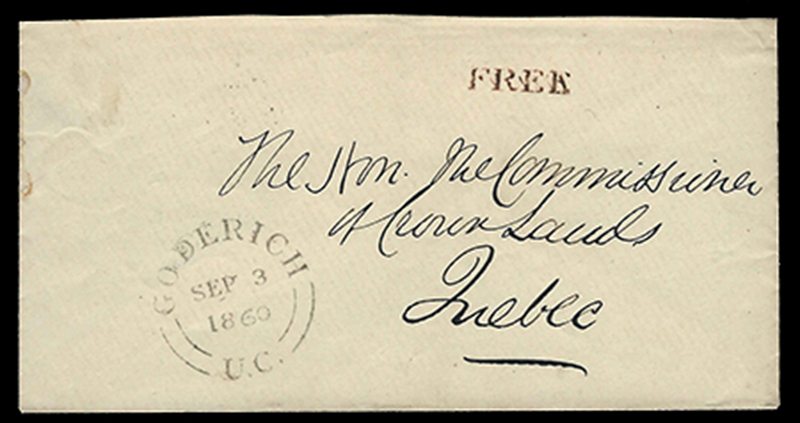 FREE
The Hon. The Commissioner
of Crown Lands
Quebec
GODERICH
SEP 3
1860
U.C.